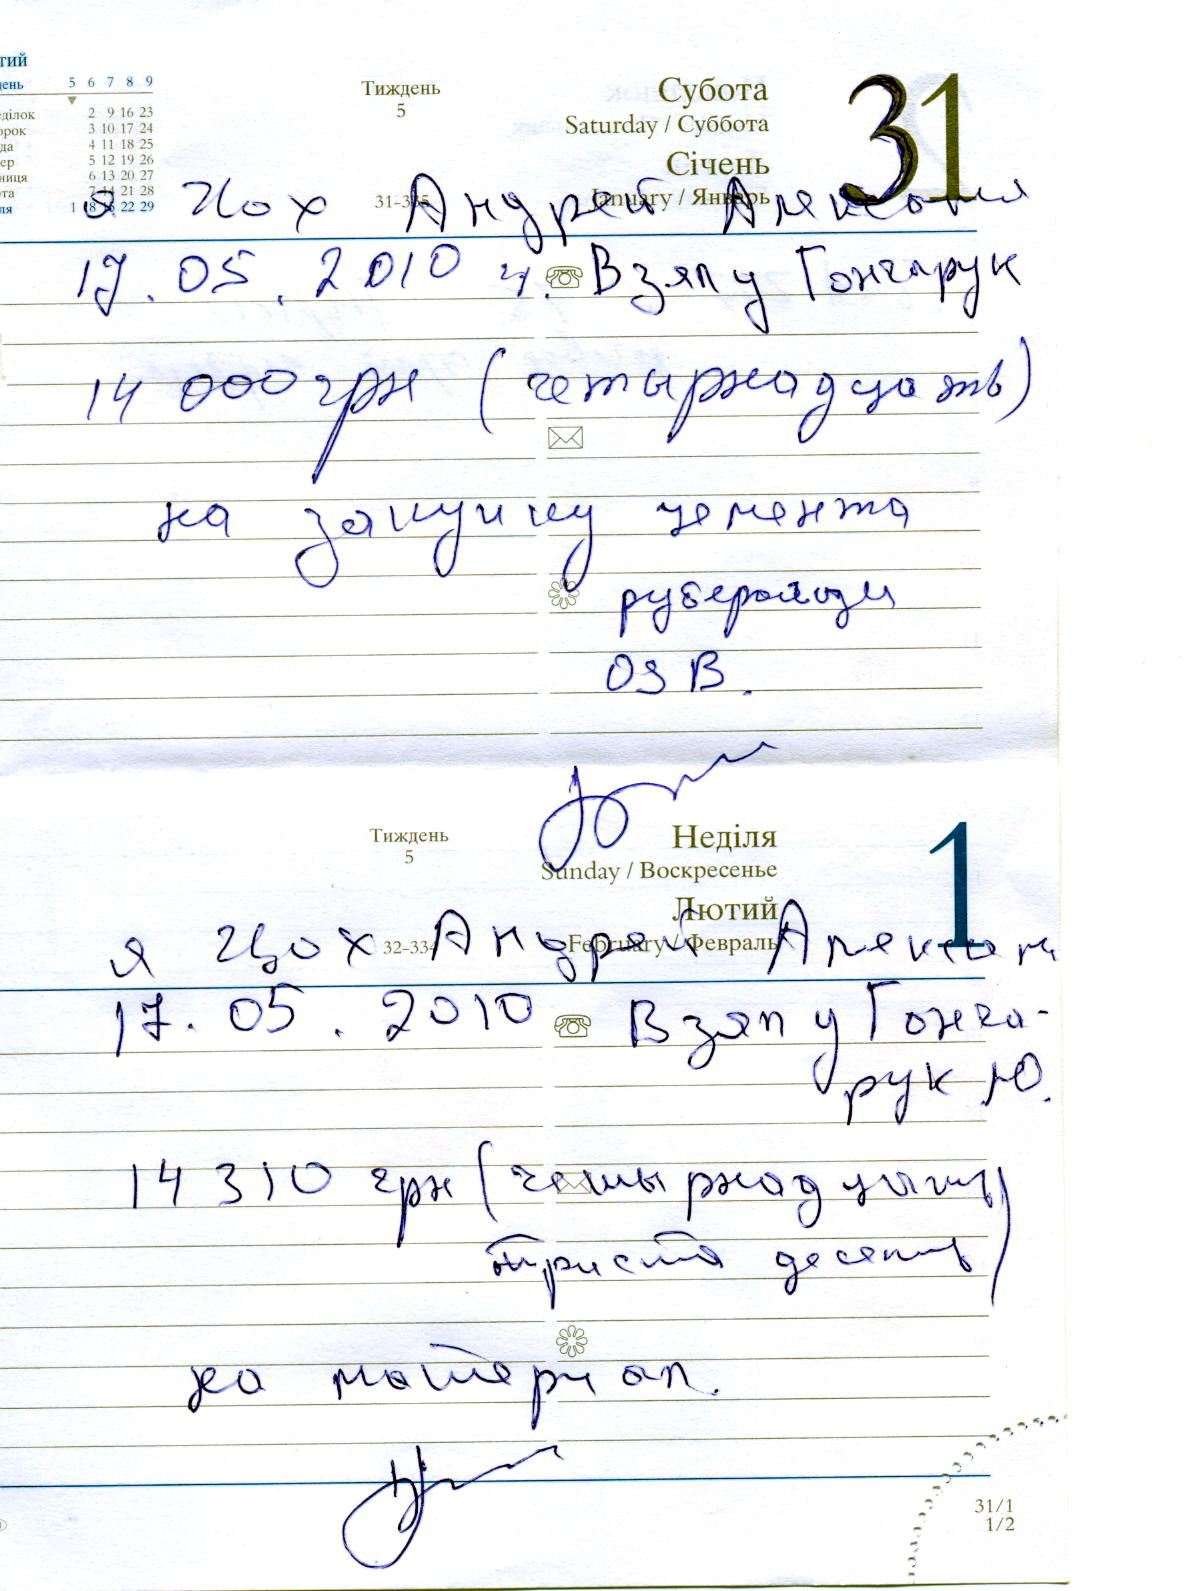 тий
день 5 6 7 8 9
еділок 2 9 16 23
орок 3 10 17 24
да 4 11 18 25
ер 5 12 19 26
ниця 6 13 20 27
ота 7 14 21 28
ля 1 8 15 22 29
Тиждень
5
31-335
Субота
Saturday / Суббота
Січень
January / Январь
31
я Цох Андрей
17.05.2010 Взял у Гончарук
14 000 грн (четырнадцать)
на закупку цемента
рубероида
OSB.
Тиждень
5
32-334
Неділя
Sunday / Воскресенье
Лютий
February / Февраль
1
я Цох Андрей
17.05.2010 Взял у Гонча-
рук Ю.
14 310 грн (четырнадцать
триста десять)
на материал.
31/1
1/2